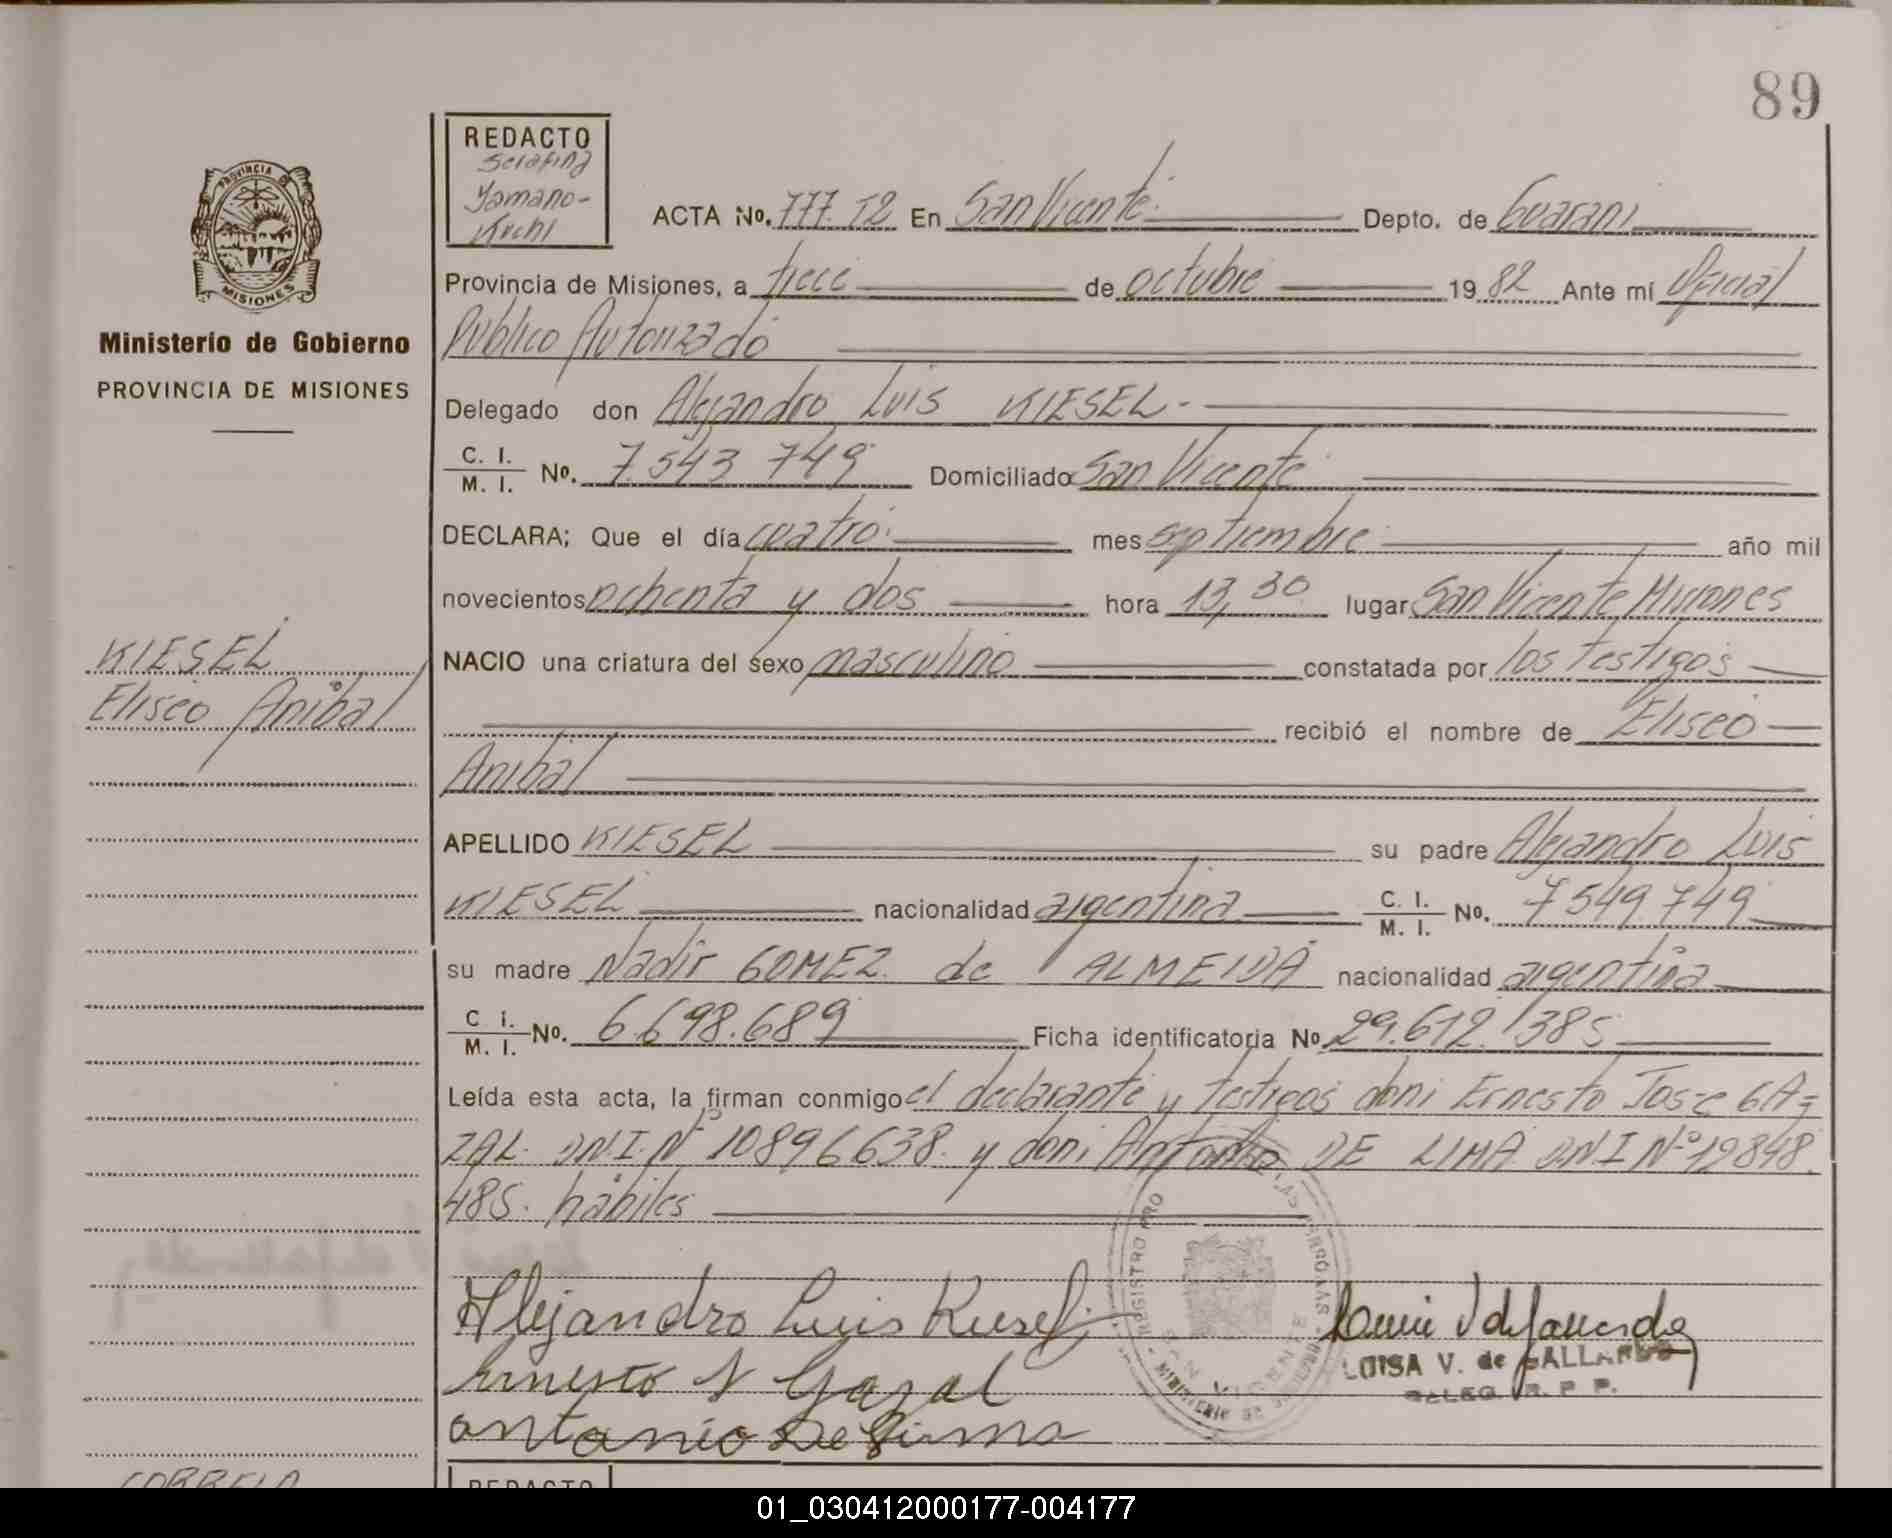 89
REDACTO
Serafina
Yamano-
Kuchi
PROVINCIA DE
MISIONES
Ministerio de Gobierno
PROVINCIA DE MISIONES
ACTA No. 777. T2 En San Vicente. Depto. de Guarani
Provincia de Misiones, a trece de octubre 19 82 Ante mí Oficial
Publico Autorizado
Delegado don Alejandro Luis KIESEL-
C. I.
M. I. No. 7.543 749 Domiciliado San Vicente
DECLARA; Que el día cuatro. mes septiembre año mil
novecientos ochenta y dos hora 13,30 lugar San Vicente Misiones
KIESEL
Eliseo Anibal
NACIO una criatura del sexo masculino constatada por los testigos
recibió el nombre de Eliseo
Anibal
APELLIDO KIESEL su padre Alejandro Luis
KIESEL nacionalidad argentina C. I.
M. I. No. 7549.749
su madre Nadir GOMEZ de ALMEIDA nacionalidad argentina
C i.
M. I. No. 6.698.689 Ficha identificatoria No 29.612.385
Leída esta acta, la firman conmigo el declarante y testigos don: Ernesto Jose GA=
ZAL. DN.I. Nº 10896638. y don: Antonio DE LIMA DNI Nº 12848.
485. habiles
Alejandro Luis Kiesel
Ernesto J Gazal
Antonio De Lima
REGISTRO PRO
DE LAS PERSONAS
SAN VICENTE
MINISTERIO DE GOBIERNO
LUISA V. de GALLARDO
DELEG. R. P. P.
CORREIA
REDACTO
01_030412000177-004177